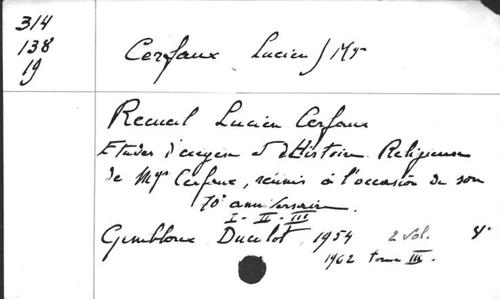 314
138
19
Cerfaux Lucien / Mgr
Recueil Lucien Cerfaux
Etudes d'exégèse et d'Histoire Religieuse
de Mgr Cerfaux, réunis à l'occasion de son
70e anniversaire.
I - II - III
Gembloux Duculot, 1954 2 vol. 8°
1962 tome III.